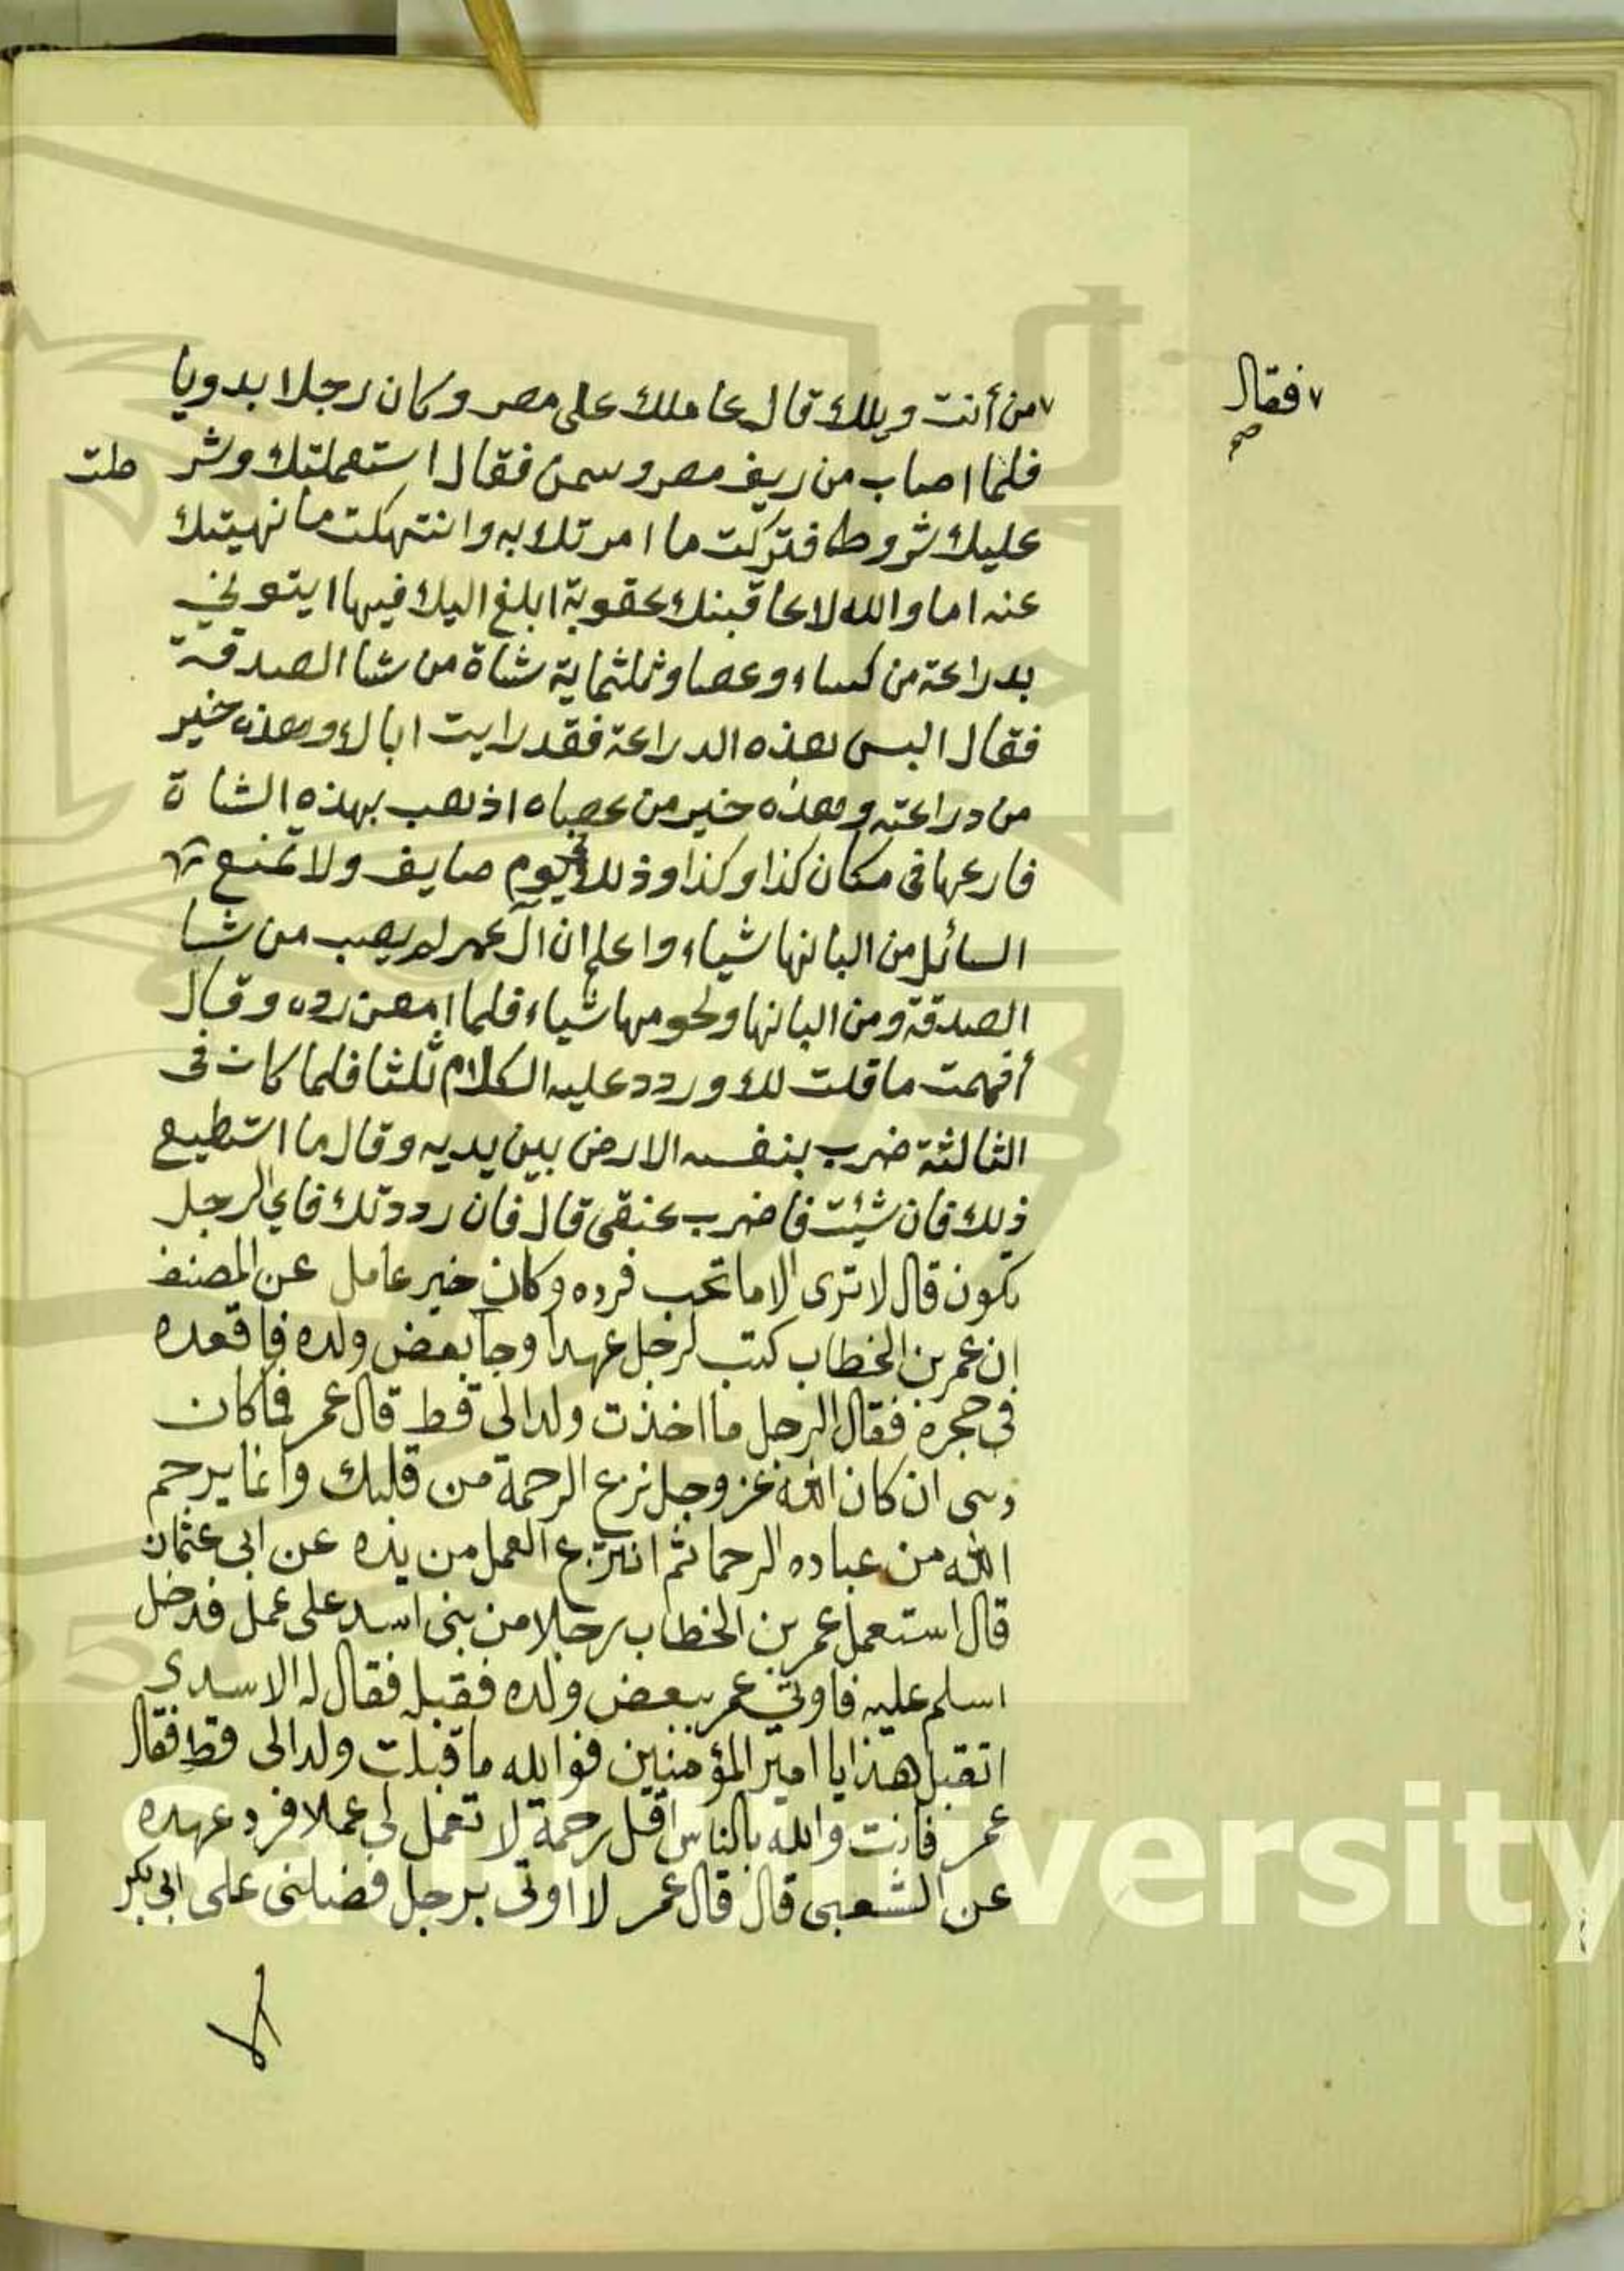 فقال
صح
من أنت ويلك قال عاملك على مصر وكان رجلا بدويا
فلما اصاب من ريف مصر وسمن فقال استعملتك وشر طت
عليك شروطا فتركت ما امرتك به وانتهكت ما نهيتك
عنه اما والله لاعاقبنك عقوبة ابلغ اليك فيها ايتوني
بدراعة من كساء وعصا وثلثماية شاة من شا الصدقة
فقال البس هذه الدراعة فقد رايت اباك وهذه خير
من دراعته وهذه خير من عصاه اذهب بهذه الشا ة
فارعها في مكان كذا وكذا وذلك في يوم صايف ولا تمنع
السائل من البانها شياء واعلم ان آل عمر لم يصب من شا
الصدقة ومن البانها ولحومها شياء فلما امعن رده وقال
أفهمت ما قلت لك وردد عليه الكلام ثلثا فلما كان في
الثالثة ضرب بنفسه الارض بين يديه وقال ما استطيع
ذلك فان شئت فاضرب عنقي قال فان رددتك فاي الرجل
تكون قال لا ترى الا ما تحب فرده وكان خير عامل عن المصنف
ان عمر بن الخطاب كتب لرجل عهدا وجا بعض ولده فاقعده
في حجره فقال الرجل ما اخذت ولدا لي قط قال عمر فما كان
ذنبي ان كان الله عز وجل نزع الرحمة من قلبك وانما يرحم
الله من عباده الرحما ثم انتزع العمل من يده عن ابي عثمان
قال استعمل عمر بن الخطاب رجلا من بني اسد على عمل فدخل
اسلم عليه فاوتي عمر ببعض ولده فقبله فقال له الاسدي
اتقبل هذا يا امير المؤمنين فوالله ما قبلت ولدا لي قط فقال
عمر فانت والله بالناس اقل رحمة لا تعمل لي عملا فرد عهده
عن الشعبي قال قال عمر لا اوتى برجل فضلني على ابي بكر
الا
g Saud University